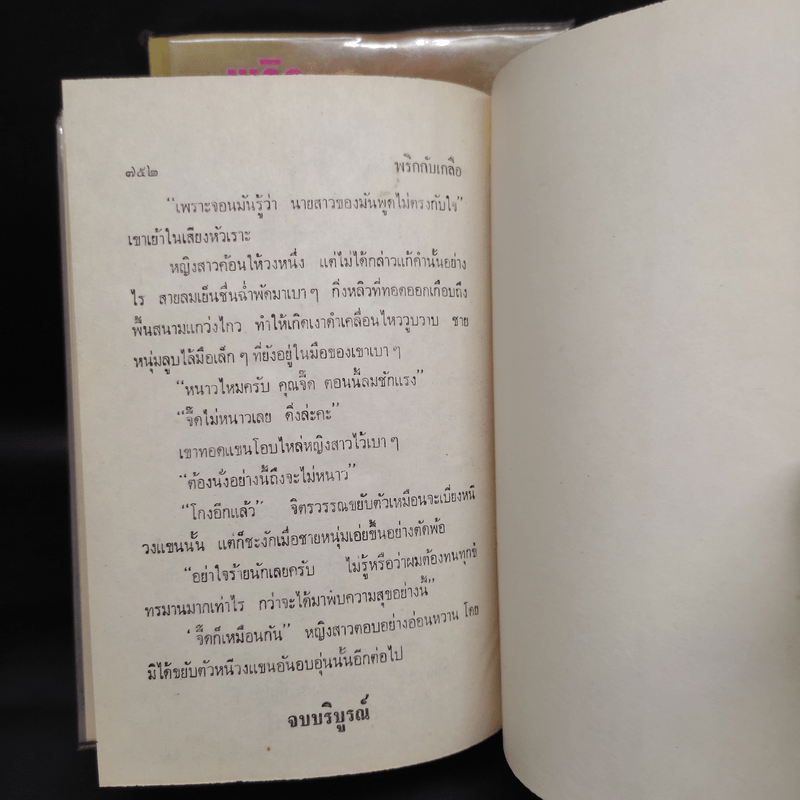 พริก
๗๕๒ พริกกับเกลือ
“เพราะจอนมันรู้ว่า นายสาวของมันพูดไม่ตรงกับใจ”
เขาเย้าในเสียงหัวเราะ
หญิงสาวค้อนให้วงหนึ่ง แต่ไม่ได้กล่าวแก้คำนั้นอย่าง
ไร สายลมเย็นชื่นฉ่ำพัดมาเบา ๆ กิ่งหลิวที่ทอดออกเกือบถึง
พื้นสนามแกว่งไกว ทำให้เกิดเงาดำเคลื่อนไหววูบวาบ ชาย
หนุ่มลูบไล้มือเล็ก ๆ ที่ยังอยู่ในมือของเขาเบา ๆ
“หนาวไหมครับ คุณจี๊ด ตอนนี้ลมชักแรง”
“จี๊ดไม่หนาวเลย ดึ่งล่ะคะ”
เขาทอดแขนโอบไหล่หญิงสาวไว้เบา ๆ
“ต้องนั่งอย่างนี้ถึงจะไม่หนาว”
“โกงอีกแล้ว” จิตรวรรณขยับตัวเหมือนจะเบี่ยงหนี
วงแขนนั้น แต่ก็ชะงักเมื่อชายหนุ่มเอ่ยขึ้นอย่างตัดพ้อ
“อย่าใจร้ายนักเลยครับ ไม่รู้หรือว่าผมต้องทนทุกข์
ทรมานมากเท่าไร กว่าจะได้มาพบความสุขอย่างนี้”
‘จี๊ดก็เหมือนกัน” หญิงสาวตอบอย่างอ่อนหวาน โดย
มิได้ขยับตัวหนีวงแขนอันอบอุ่นนั้นอีกต่อไป
จบบริบูรณ์